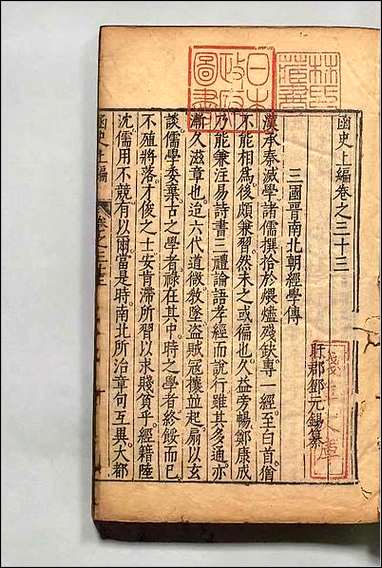 函史上編卷之三十三
盱郡鄧元錫纂
三國晉南北朝經學傳
漢承秦滅學諸儒撰拾於煨燼殘缺專一經至白首猶
不能相為後頗兼習然未之或徧也久益旁暢鄭康成
乃能兼注易詩書三禮論語孝經而說行雖其多通亦
漸久滋章也迨六代道微敎墜盜賊冠攘並起扇以玄
談儒學委棄古之學者祿在其中時之學者終餒而已
不殖將落才俊之士安肯滯所習以求賤貧乎經籍陸
沈儒用不競有以爾當是時南北所治章句互異大都
函史上編
卷之三十三
日本
政府
圖書